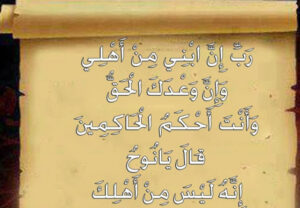 رَبِّ إِنَّ ابْنِي مِنْ أَهْلِي
وَإِنَّ وَعْدَكَ الْحَقُّ
وَأَنْتَ أَحْكَمُ الْحَاكِمِينَ
قَالَ يَانُوحُ
إِنَّهُ لَيْسَ مِنْ أَهْلِكَ